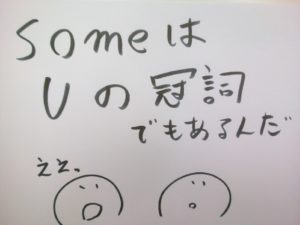 someは
Uの冠詞
でもあるんだ
ええ、